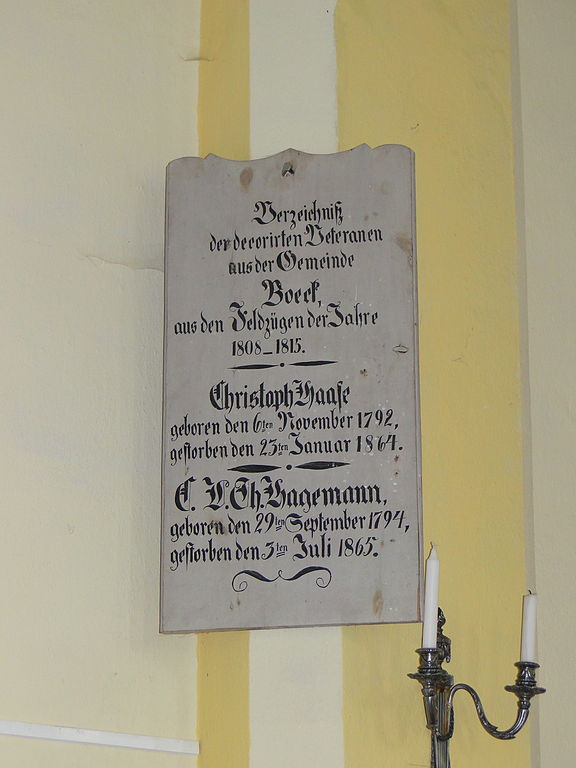 Verzeichniß
der decorirten Veteranen
aus der Gemeinde
Boeck,
aus den Feldzügen der Jahre
1808_1815.
Christoph Haase
geboren den 6ten November 1792,
gestorben den 23ten Januar 1864.
C. L. Th. Hagemann,
geboren den 29ten September 1794,
gestorben den 3ten Juli 1865.